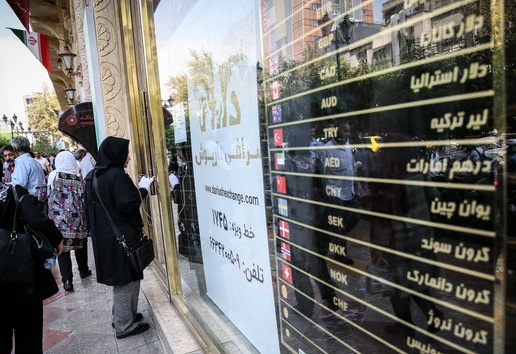 داریوش
صرافی داریوش
www.dariushexchange.com
خط ویژه: ۱۷۷۴۵
تلفن: ۹-۶۶۳۴۲۰۰۵
CAD دلار کانادا
AUD دلار استرالیا
TRY لیر ترکیه
AED درهم امارات
CNY یوان چین
SEK کرون سوئد
DKK کرون دانمارک
NOK کرون نروژ
CHF